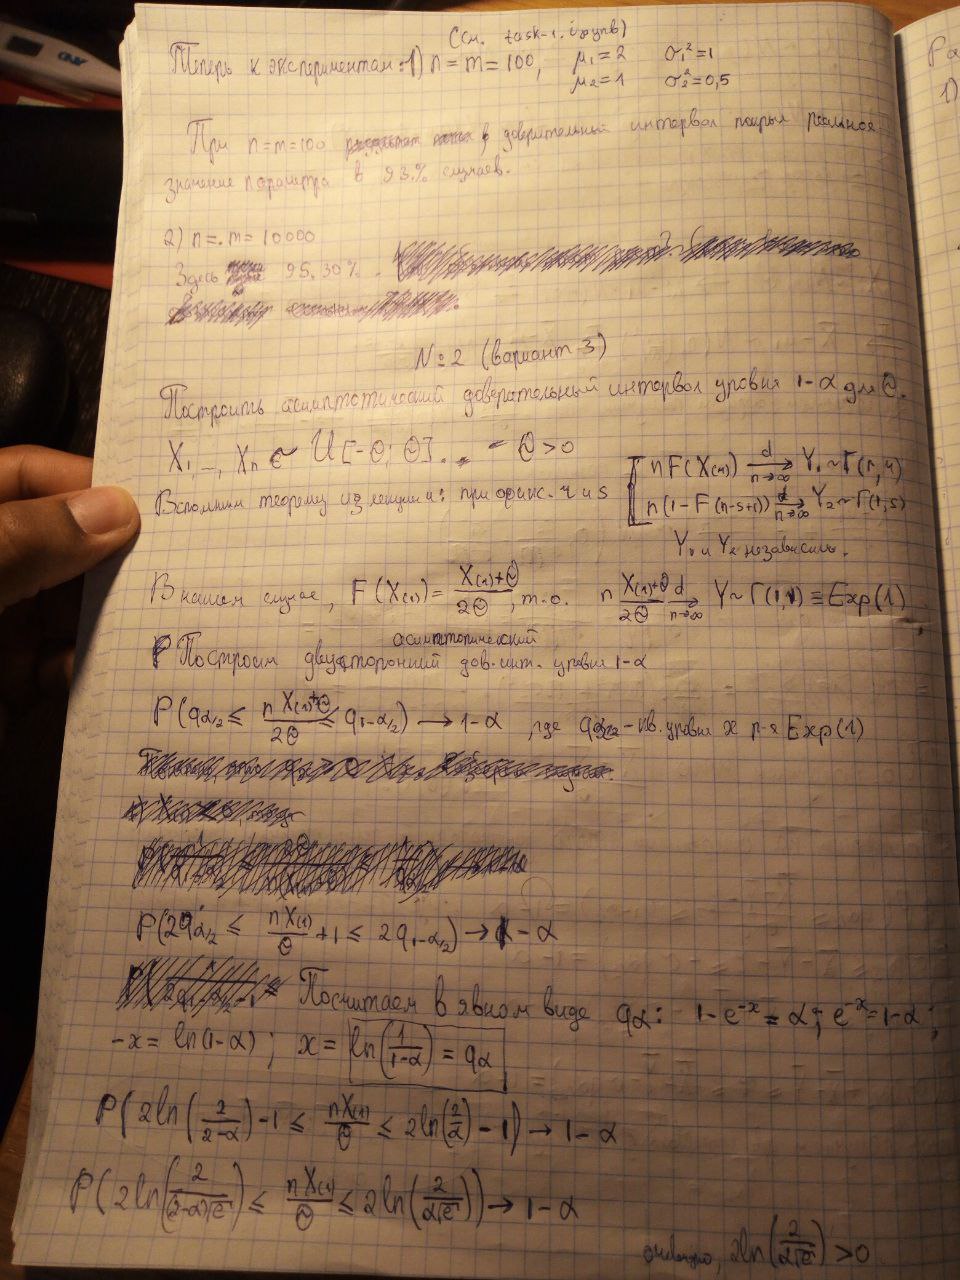 (см. task-1.ipynb)
Теперь к экспериментам: 1) n = m = 100, μ₁ = 2 σ₁² = 1
μ₂ = 1 σ₂² = 0,5
При n = m = 100 доверительный интервал покрыл реальное
значение параметра в 93% случаев.
2) n = m = 10000
Здесь 95.30%.
N=2 (вариант 3)
Построить асимптотический доверительный интервал уровня 1-α для θ.
X₁, ..., Xₙ ~ U[-θ; θ]. θ > 0
Вспомним теорему из лекции: при фикс. r и s
[ nF(X₍ᵣ₎) →(d, n→∞) Y₁ ~ Γ(r, 1)
n(1 - F(n-s+1)) →(d, n→∞) Y₂ ~ Γ(1, s)
Y₁ и Y₂ независимы.
В нашем случае, F(X₍₁₎) = (X₍₁₎+θ)/2θ, т.о. n (X₍₁₎+θ)/2θ →(d, n→∞) Y ~ Γ(1,1) ≡ Exp(1)
асимптотический
Построим двусторонний дов. инт. уровня 1-α
P(q_{α/2} ≤ (n X₍₁₎+θ)/2θ ≤ q_{1-α/2}) → 1-α, где - кв. уровня x р-я Exp(1)
P(2q_{α/2} ≤ nX₍₁₎/θ + 1 ≤ 2q_{1-α/2}) → 1-α
Посчитаем в явном виде q_α: 1-e^{-x} = α; e^{-x} = 1-α;
-x = ln(1-α); x = ln(1/(1-α)) = q_α
P(2ln(2/(2-α)) - 1 ≤ nX₍₁₎/θ ≤ 2ln(2/α) - 1) → 1-α
P(2ln(2/((2-α)√e)) ≤ nX₍₁₎/θ ≤ 2ln(2/(α√e))) → 1-α
очевидно, 2ln(2/(α√e)) > 0